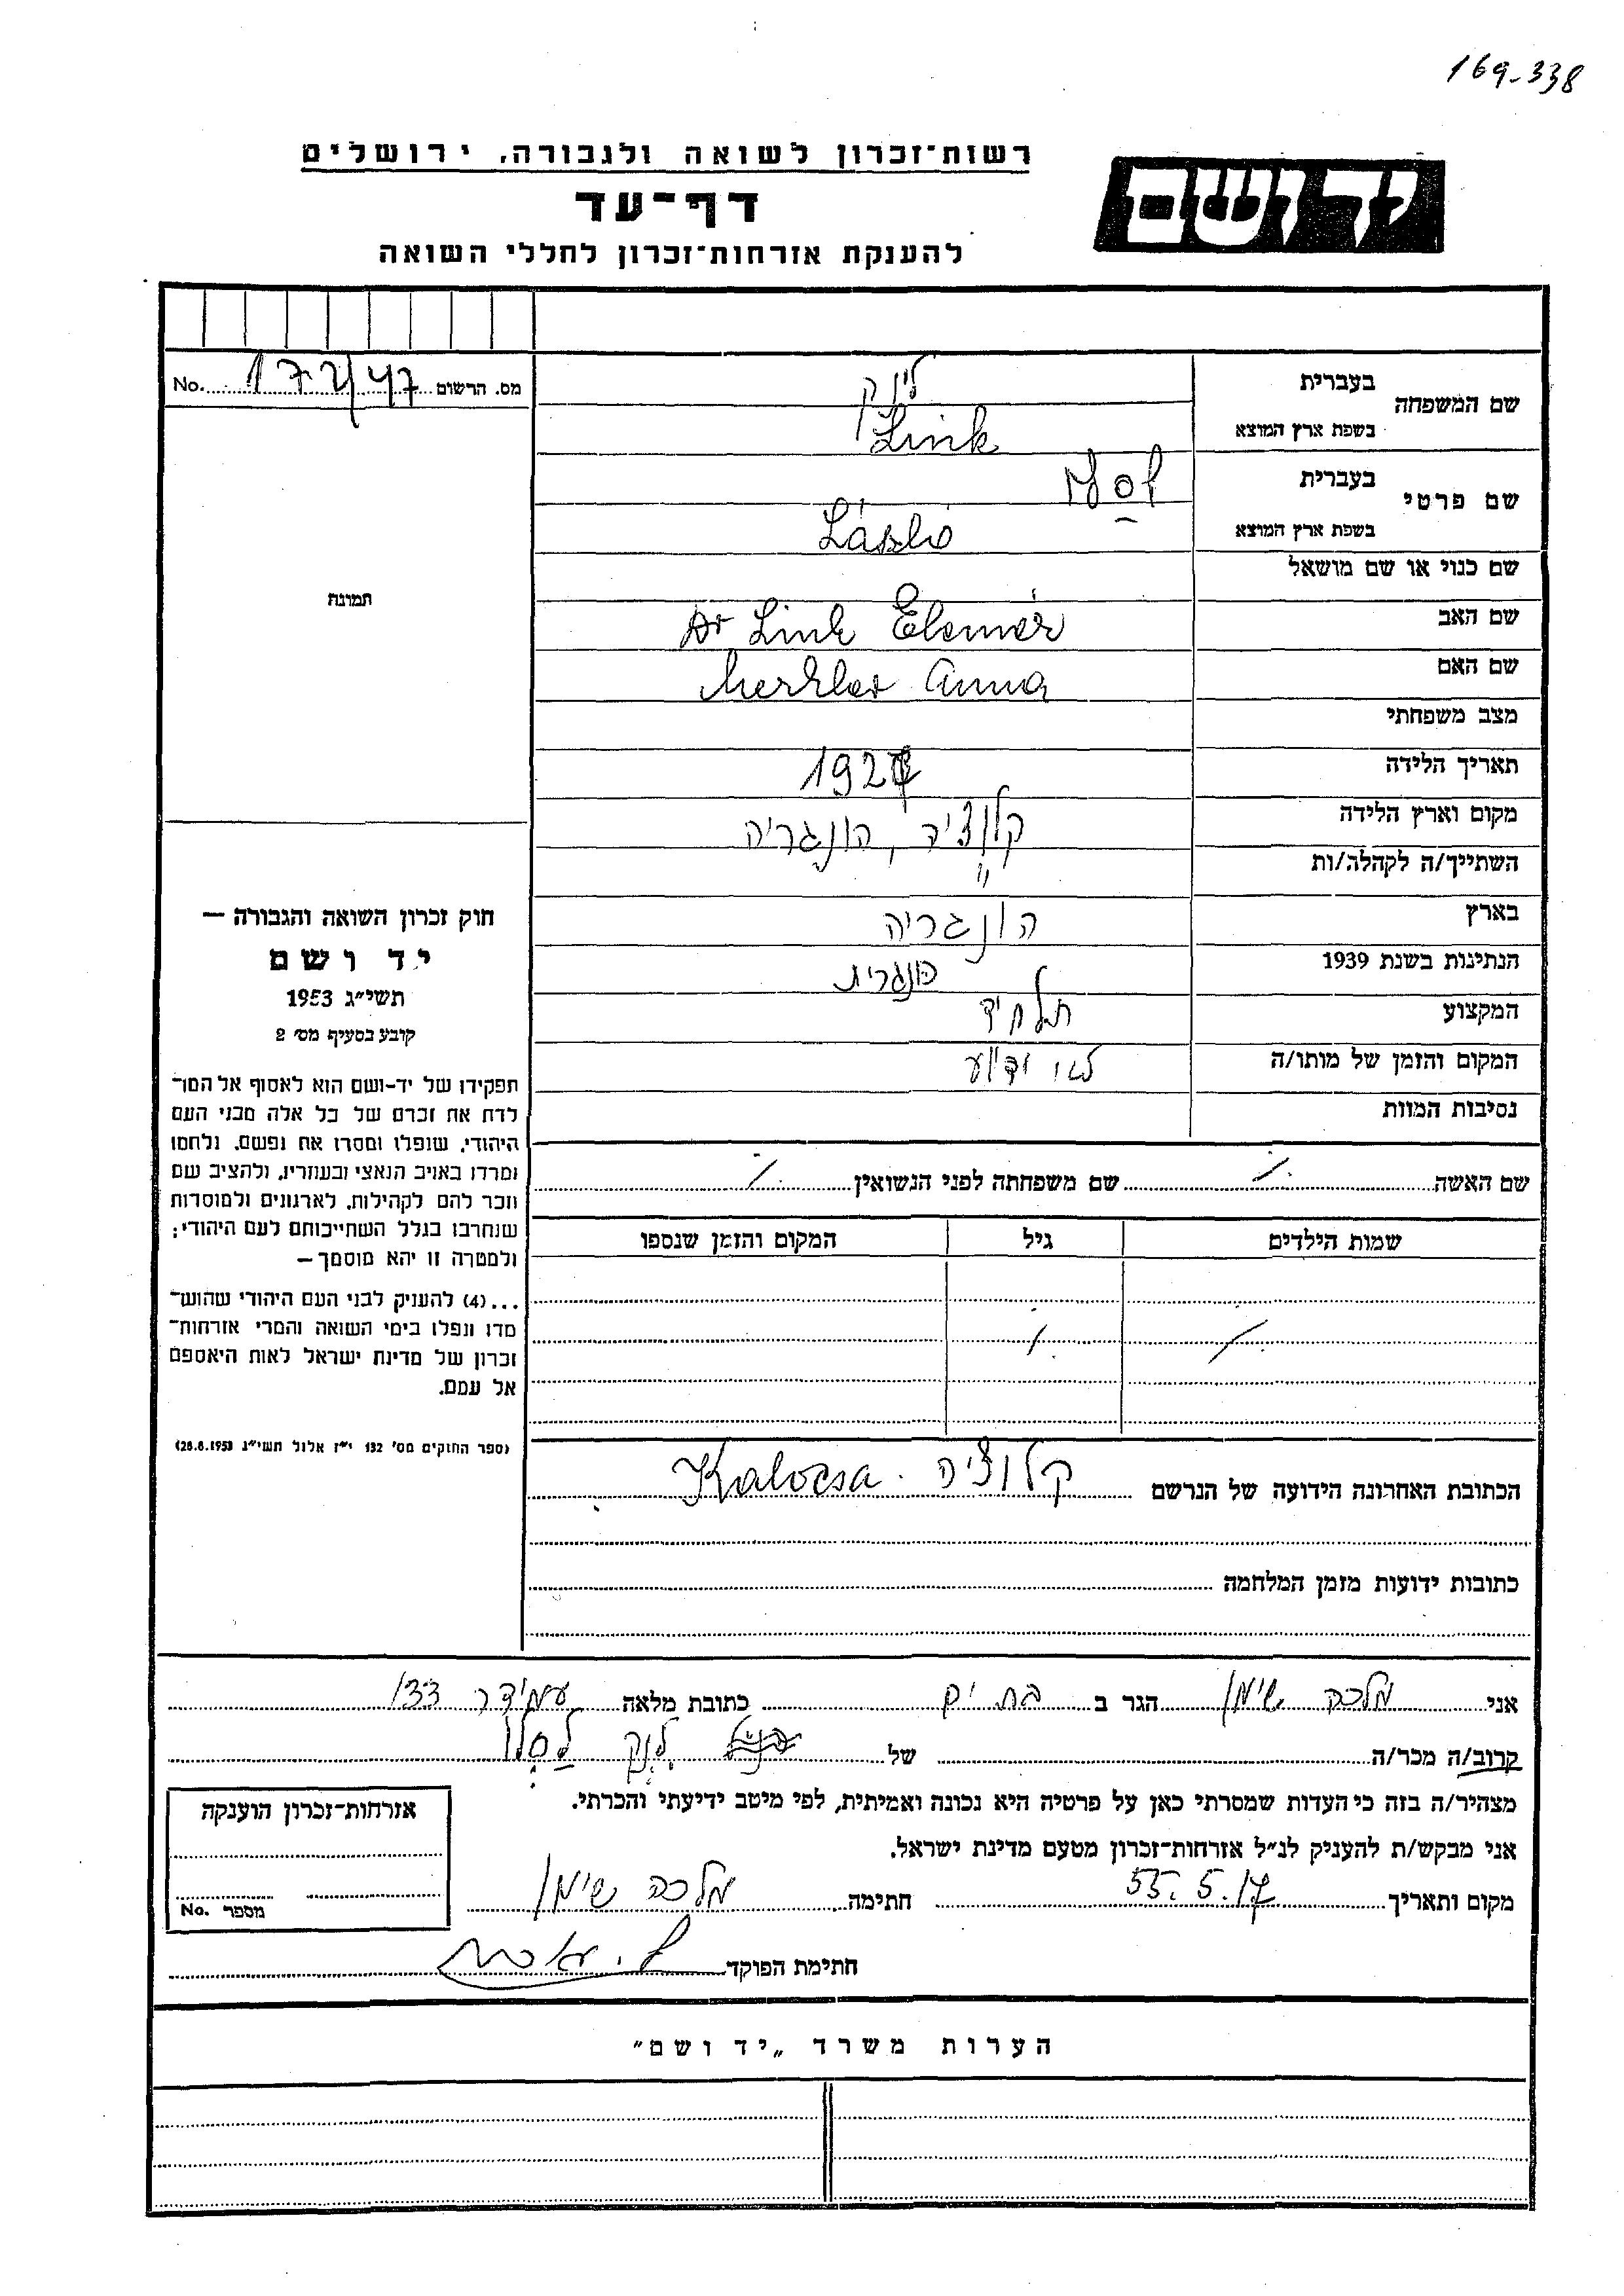 169-338
רשות־זכרון לשואה ולגבורה, ירושלים
יד ושם
דף־עד
להענקת אזרחות־זכרון לחללי השואה
מס. הרשום 172/47 No.
שם המשפחה
בעברית לינק
בשפת ארץ המוצא Link
שם פרטי
בעברית
בשפת ארץ המוצא László
שם כנוי או שם מושאל
שם האב Dr Link Elemér
שם האם Anna
מצב משפחתי
תאריך הלידה
מקום וארץ הלידה הונגריה
השתייך/ה לקהלה/ות "
בארץ הונגריה
הנתינות בשנת 1939 הונגרית
המקצוע תלמיד
המקום והזמן של מותו/ה לא ידוע
נסיבות המוות
שם האשה ./. שם משפחתה לפני הנשואין ./.
שמות הילדים גיל המקום והזמן שנספו
הכתובת האחרונה הידועה של הנרשם קלוציה. Kalocsa
כתובות ידועות מזמן המלחמה
תמונה
חוק זכרון השואה והגבורה —
יד ושם
תשי״ג 1953
קובע בסעיף מס׳ 2
תפקידו של יד-ושם הוא לאסוף אל המו־
לדת את זכרם של כל אלה מבני העם
היהודי, שנפלו ומסרו את נפשם, נלחמו
ומרדו באויב הנאצי ובעוזריו, ולהציב שם
וזכר להם לקהילות, לארגונים ולמוסדות
שנחרבו בגלל השתייכותם לעם היהודי;
ולמטרה זו יהא מוסמך —
...(4) להעניק לבני העם היהודי שהוש־
מדו ונפלו בימי השואה והמרי אזרחות־
זכרון של מדינת ישראל לאות היאספם
אל עמם.
(ספר החוקים מס׳ 132 י״ז אלול תשי״ג 28.8.1953)
אני מלכה שימן הגר ב בת ים כתובת מלאה עמידר 133
קרוב/ה מכר/ה של לינק לסלו
מצהיר/ה בזה כי העדות שמסרתי כאן על פרטיה היא נכונה ואמיתית, לפי מיטב ידיעתי והכרתי.
אני מבקש/ת להעניק לנ״ל אזרחות־זכרון מטעם מדינת ישראל.
מקום ותאריך 55.5.17 חתימה מלכה שימן
חתימת הפוקד
אזרחות־זכרון הוענקה
מספר No.
הערות משרד „יד ושם״